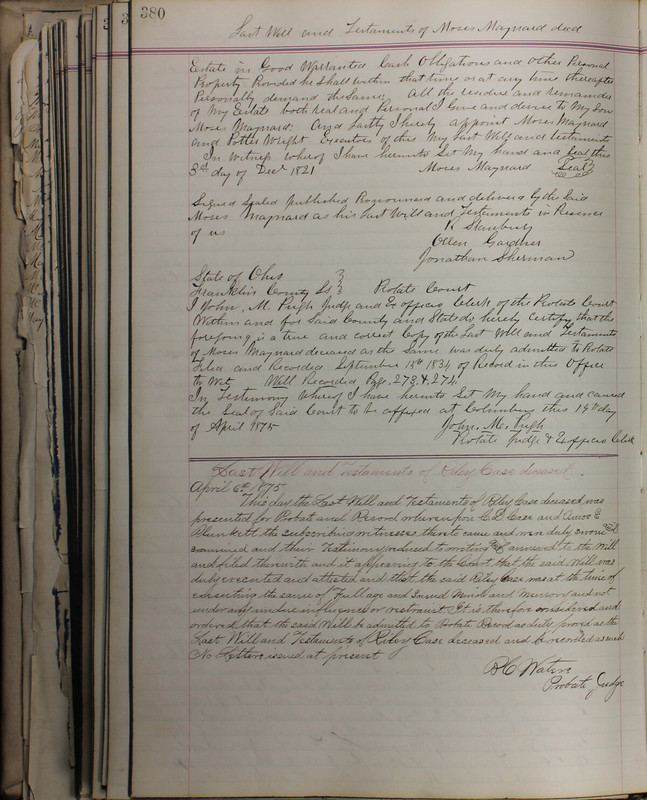 380
Last Will and Testaments of Moses Maynard decd
Estate in Good Warrantied Cash Obligations and other Personal
Property Provided he Shall within that time or at any time thereafter
Personally demand the Same. All the residue and remainder
of My Estate both real and Personal I Give and devise to My Son
Moses Maynard. And Lastly I hereby appoint Moses Maynard
and Potter Wright Executors of this My Last Will and testaments
In Witness whereof I have hereunto Set My hand and Seal this
3rd day of Decr 1821 Moses Maynard Seal
Signed Sealed published Pronounced and delivered by the Said
Moses Maynard as his Last Will and Testaments in Presence
of us R Stanbury
Ollen Gardner
Jonathan Sherman
State of Ohio
Franklin County SS Probate Court
I John. M. Pugh Judge and Ex officio Clerk of the Probate Court
Within and for Said County and State do hereby Certify that the
foregoing is a true and correct Copy of the Last Will and Testaments
of Moses Maynard deceased as the Same was duly admitted to Probate
Filed and Recorded September 15th 1834 of Record in this Office
to Wit Will Record Pgs. 273, & 274.
In Testimony Whereof I have hereunto Set My hand and caused
the Seal of Said Court to be affixed at Columbus this 19th day
of April 1875 John. M. Pugh
Probate Judge & Exofficio Clerk
Last Will and Testaments of Riley Case deceased.
April 6th 1875
This day the Last Will and Testaments of Riley Case deceased was
presented for Probate and Record whereupon C D Case and Amos C
Plunkett the subscribing witnesses thereto came and were duly sworn and
examined and their Testimony reduced to writing and annexed to the Will
and filed therewith and it appearing to the Court that the said Will was
duly executed and attested and that the said Riley Case was at the time of
executing the same of Full age and Sound Mind and Memory and not
under any undue influence or restraint It is therefore considered and
ordered that the said Will be admitted to Probate Record as duly proved as the
Last Will and Testaments of Riley Case deceased and be recorded as such
No Letters issued at present
B C Waters
Probate Judge